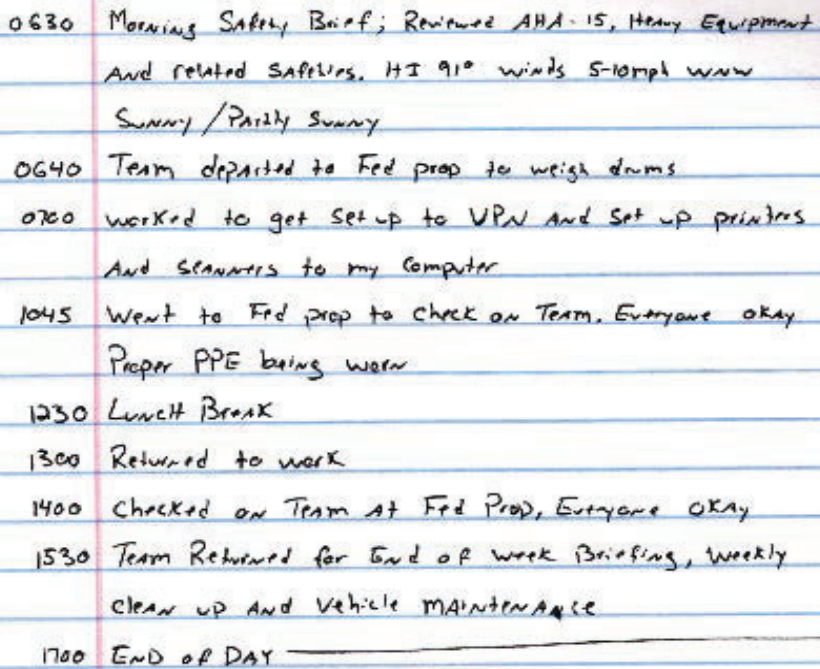 0630 Morning Safety Brief; Reviewed AHA-15, Heavy Equipment
And related Safeties. HI 91° winds 5-10mph WNW
Sunny/Partly Sunny
0640 Team departed to Fed prop to weigh drums
0700 worked to get set up to VPN And set up printers
And scanners to my computer
1045 Went to Fed prop to check on Team. Everyone okay
Proper PPE being worn
1230 Lunch Break
1300 Returned to work
1400 Checked on Team At Fed Prop, Everyone okay
1530 Team Returned for End of week Briefing, weekly
clean up And Vehicle MAINTENANCE
1700 END of DAY